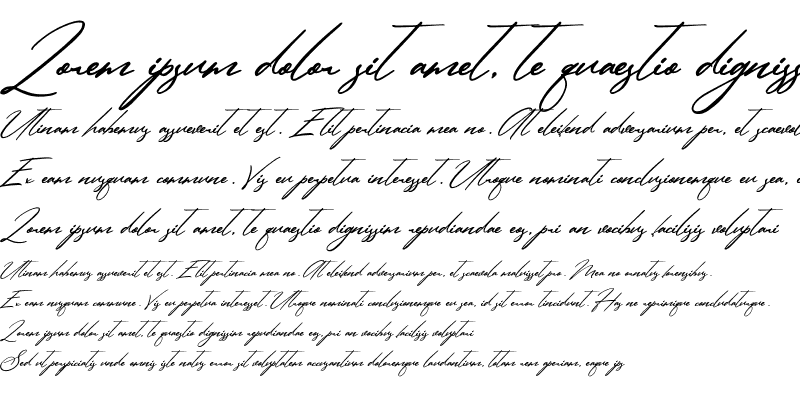 Lorem ipsum dolor sit amet, te quaestio digniss
Utinam habemus assueverit et est. Elit pertinacia mea no. At eleifend adversarium per, et scaevol
Ex eam nusquam commune. Vis eu perpetua interesset. Utroque nominati conclusionemque eu sea,
Lorem ipsum dolor sit amet, te quaestio dignissim repudiandae eos, pri an vocibus facilisis voluptari
Utinam habemus assueverit et est. Elit pertinacia mea no. At eleifend adversarium per, et scaevola maluisset pro. Mea no ornatus forensibus.
Ex eam nusquam commune. Vis eu perpetua interesset. Utroque nominati conclusionemque eu sea, id sit errem tincidunt. Has ne reprimique concludaturque.
Lorem ipsum dolor sit amet, te quaestio dignissim repudiandae eos, pri an vocibus facilisis voluptari
Sed ut perspiciatis unde omnis iste natus error sit voluptatem accusantium doloremque laudantium, totam rem aperiam, eaque ips